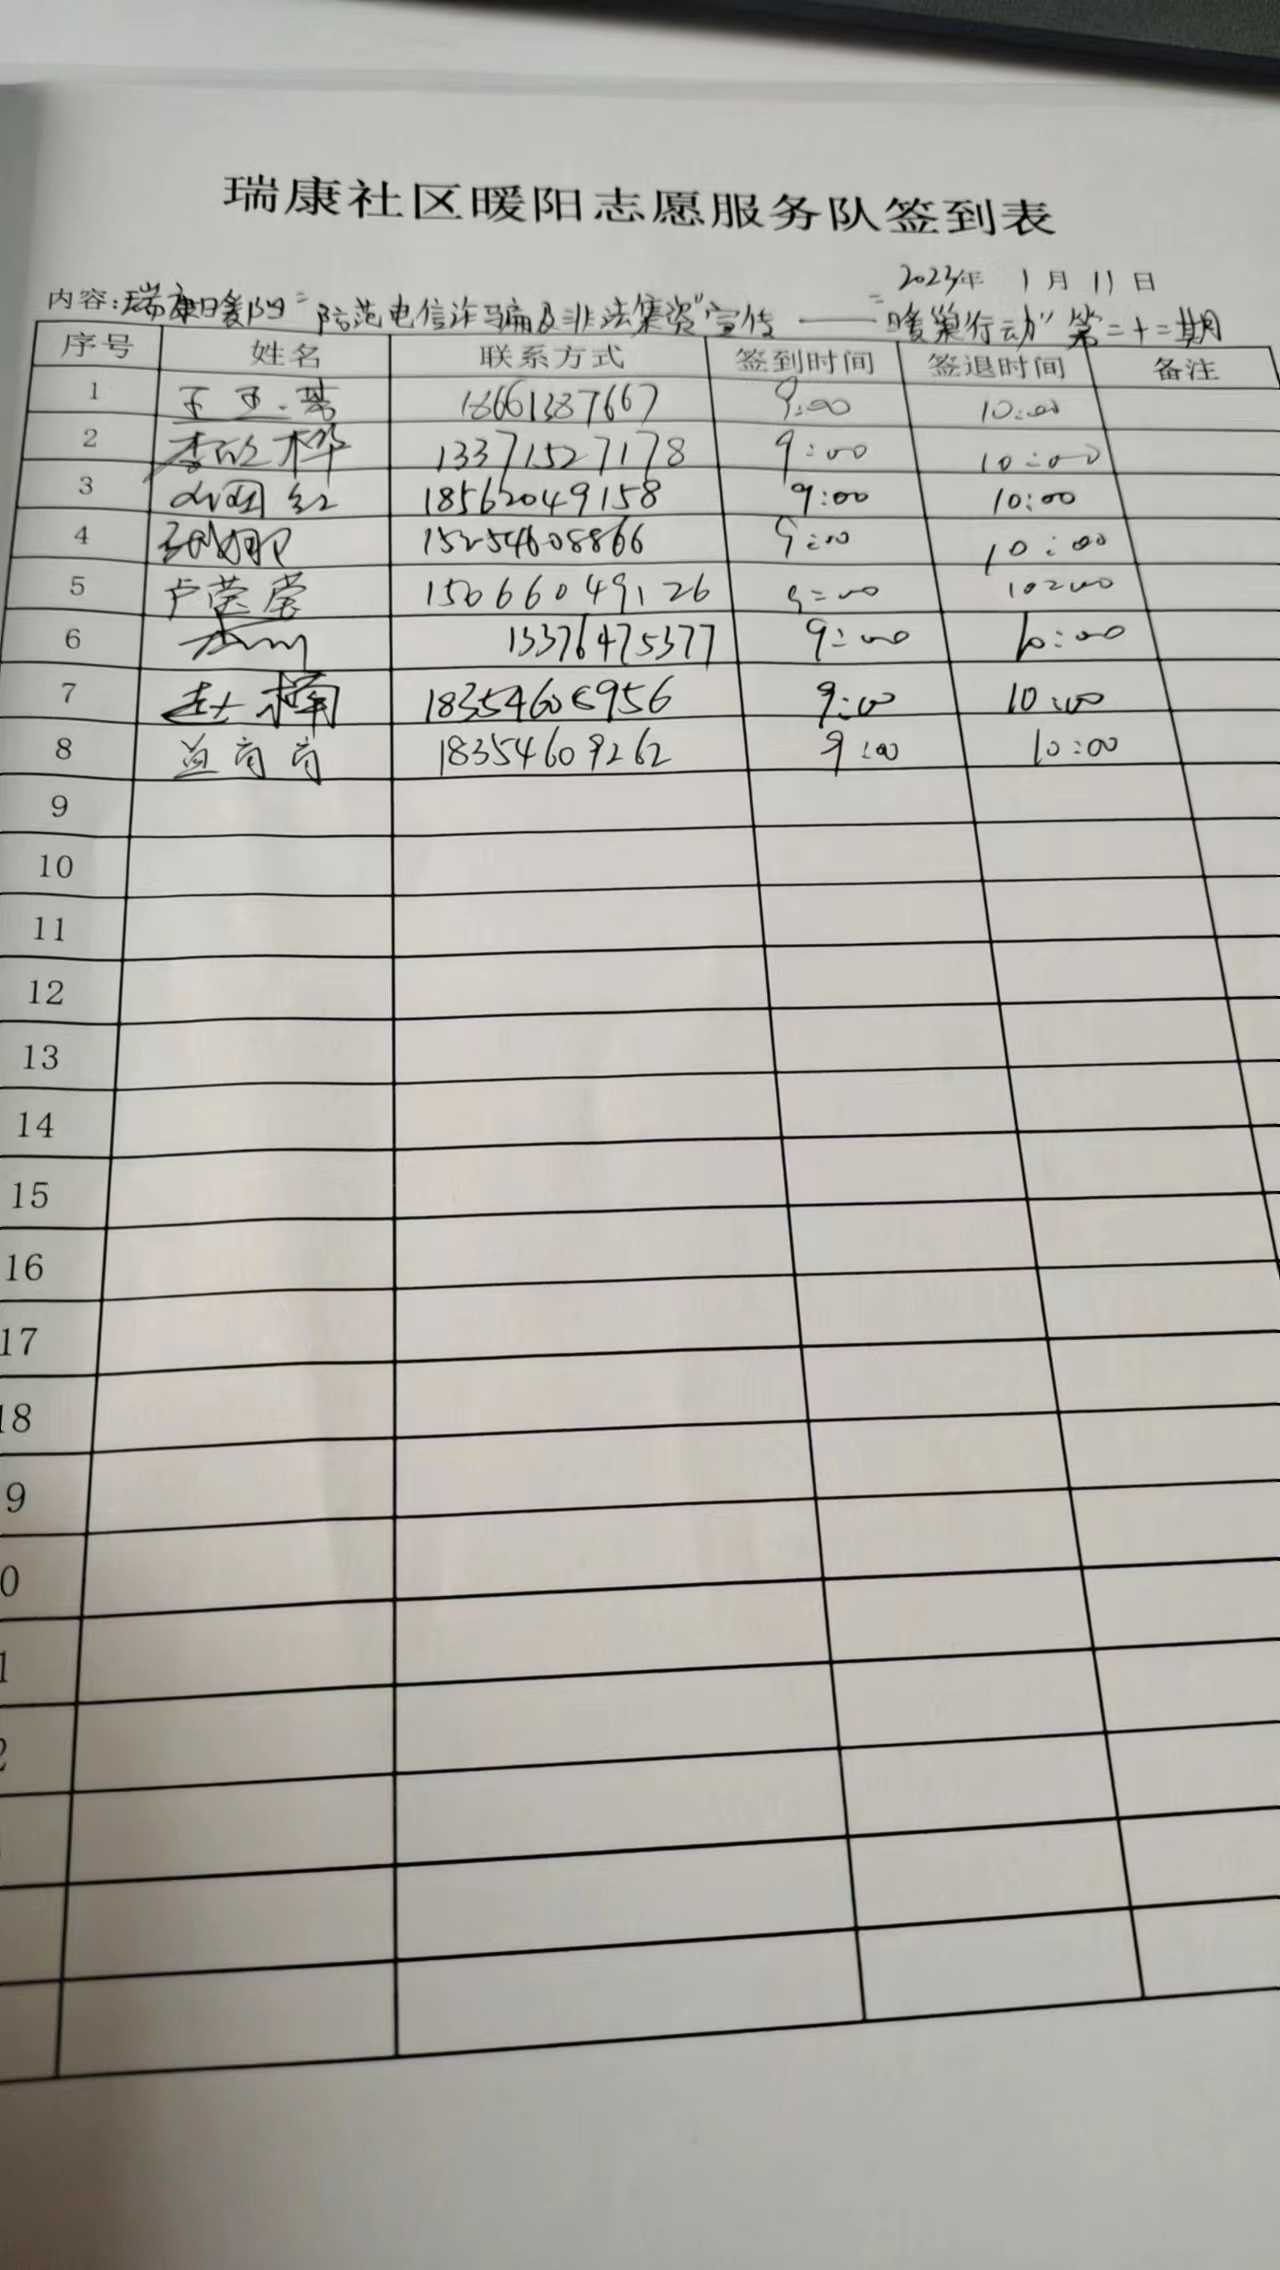 瑞康社区暖阳志愿服务队签到表
2023年 1月 11日
内容:瑞康暖阳"防范电信诈骗及非法集资"宣传——"暖巢行动"第二十二期
序号 姓名 联系方式 签到时间 签退时间 备注
1 18661387667 9:00 10:00
2 13371527178 9:00 10:00
3 18562049158 9:00 10:00
4 15254608866 9:00 10:00
5 卢莹莹 15066049126 9:00 10:00
6 13376475377 9:00 10:00
7 赵楠 9:00 10:00
8 18354609262 9:00 10:00
9
10
11
12
13
14
15
16
17
18
9
0
1
2